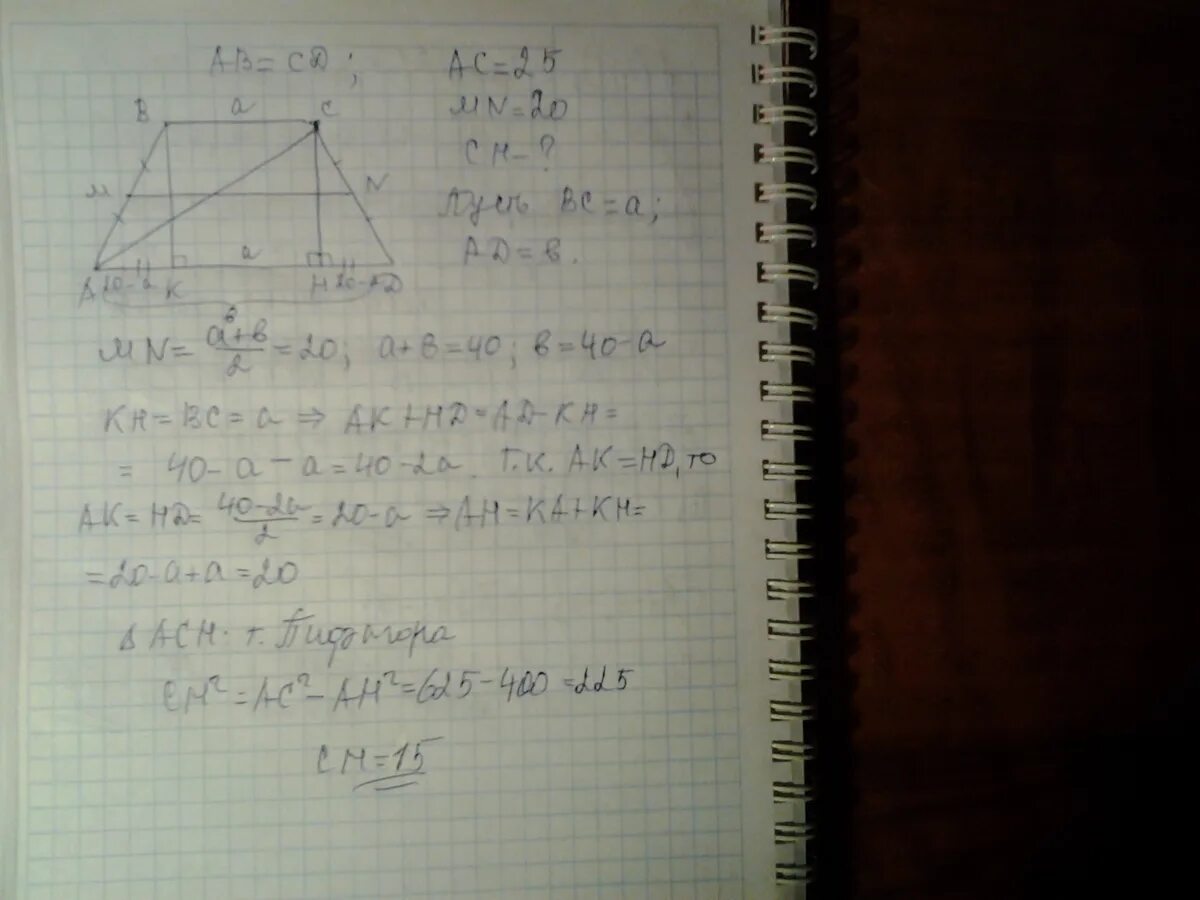 AB = CD; AC = 25
MN = 20
CH - ?
Пусть BC = a;
AD = в.
B a C
M N
a
A 20-a K H 20-a D
в
MN = (a+в)/2 = 20; a+в = 40; в = 40-a
KH = BC = a ⇒ AK + HD = AD - KH =
= 40 - a - a = 40 - 2a. Т.к. AK = HD, то
AK = HD = (40-2a)/2 = 20-a ⇒ AH = KA + KH =
= 20-a+a = 20
Δ ACH. т. Пифагора
CH² = AC² - AH² = 625 - 400 = 225
CH = 15